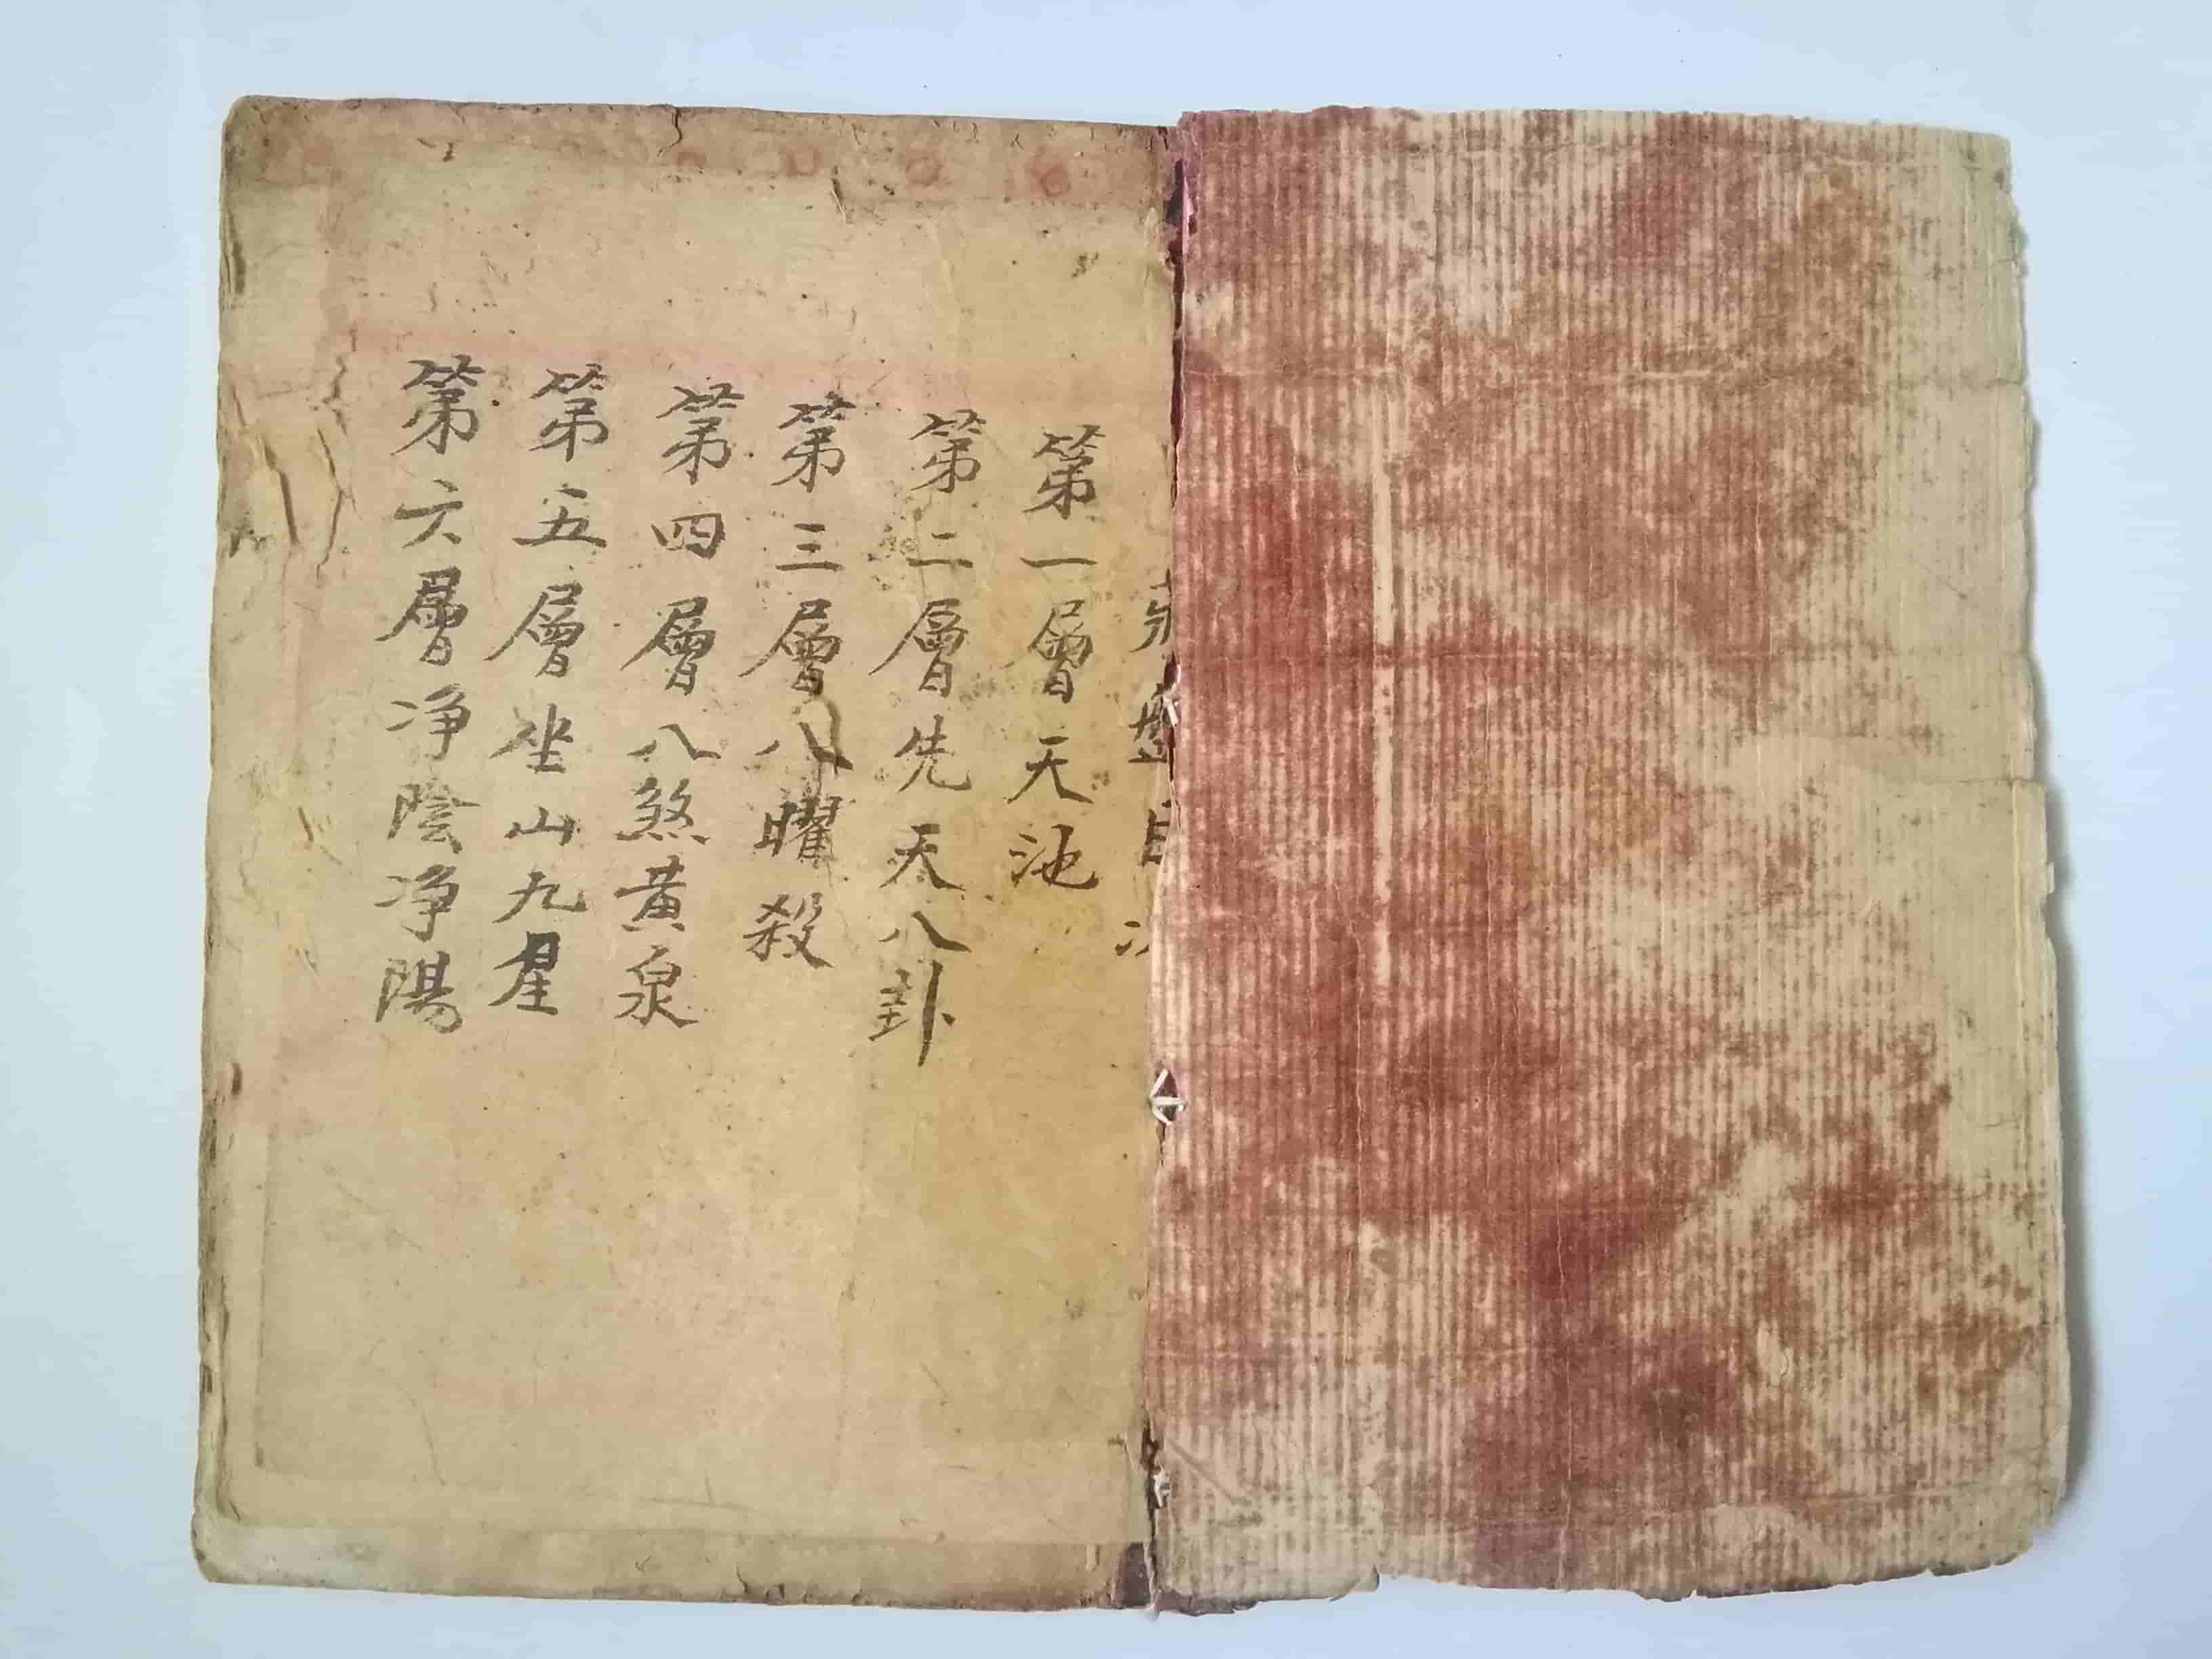 盤目次
第一層天池
第二層先天八卦
第三層八曜殺
第四層八煞黃泉
第五層坐山九星
第六層净陰净陽